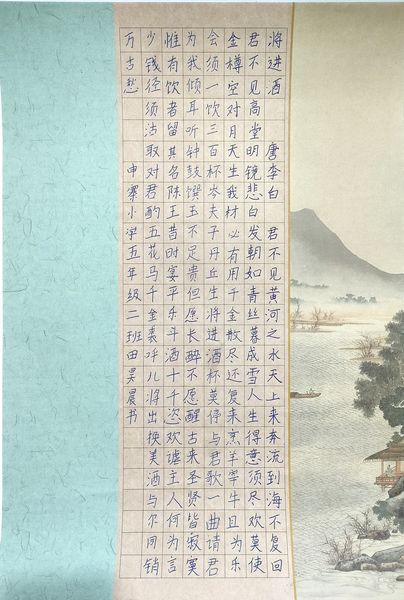 将进酒 唐李白 君不见黄河之水天上来奔流到海不复回
君不见高堂明镜悲白发朝如青丝暮成雪人生得意须尽欢莫使
金樽空对月天生我材必有用千金散尽还复来烹羊宰牛且为乐
会须一饮三百杯岑夫子丹丘生将进酒杯莫停与君歌一曲请君
为我倾耳听钟鼓馔玉不足贵但愿长醉不愿醒古来圣贤皆寂寞
惟有饮者留其名陈王昔时宴平乐斗酒十千恣欢谑主人何为言
少钱径须沽取对君酌五花马千金裘呼儿将出换美酒与尔同销
万古愁 申寨小学五年级二班田昊晨书